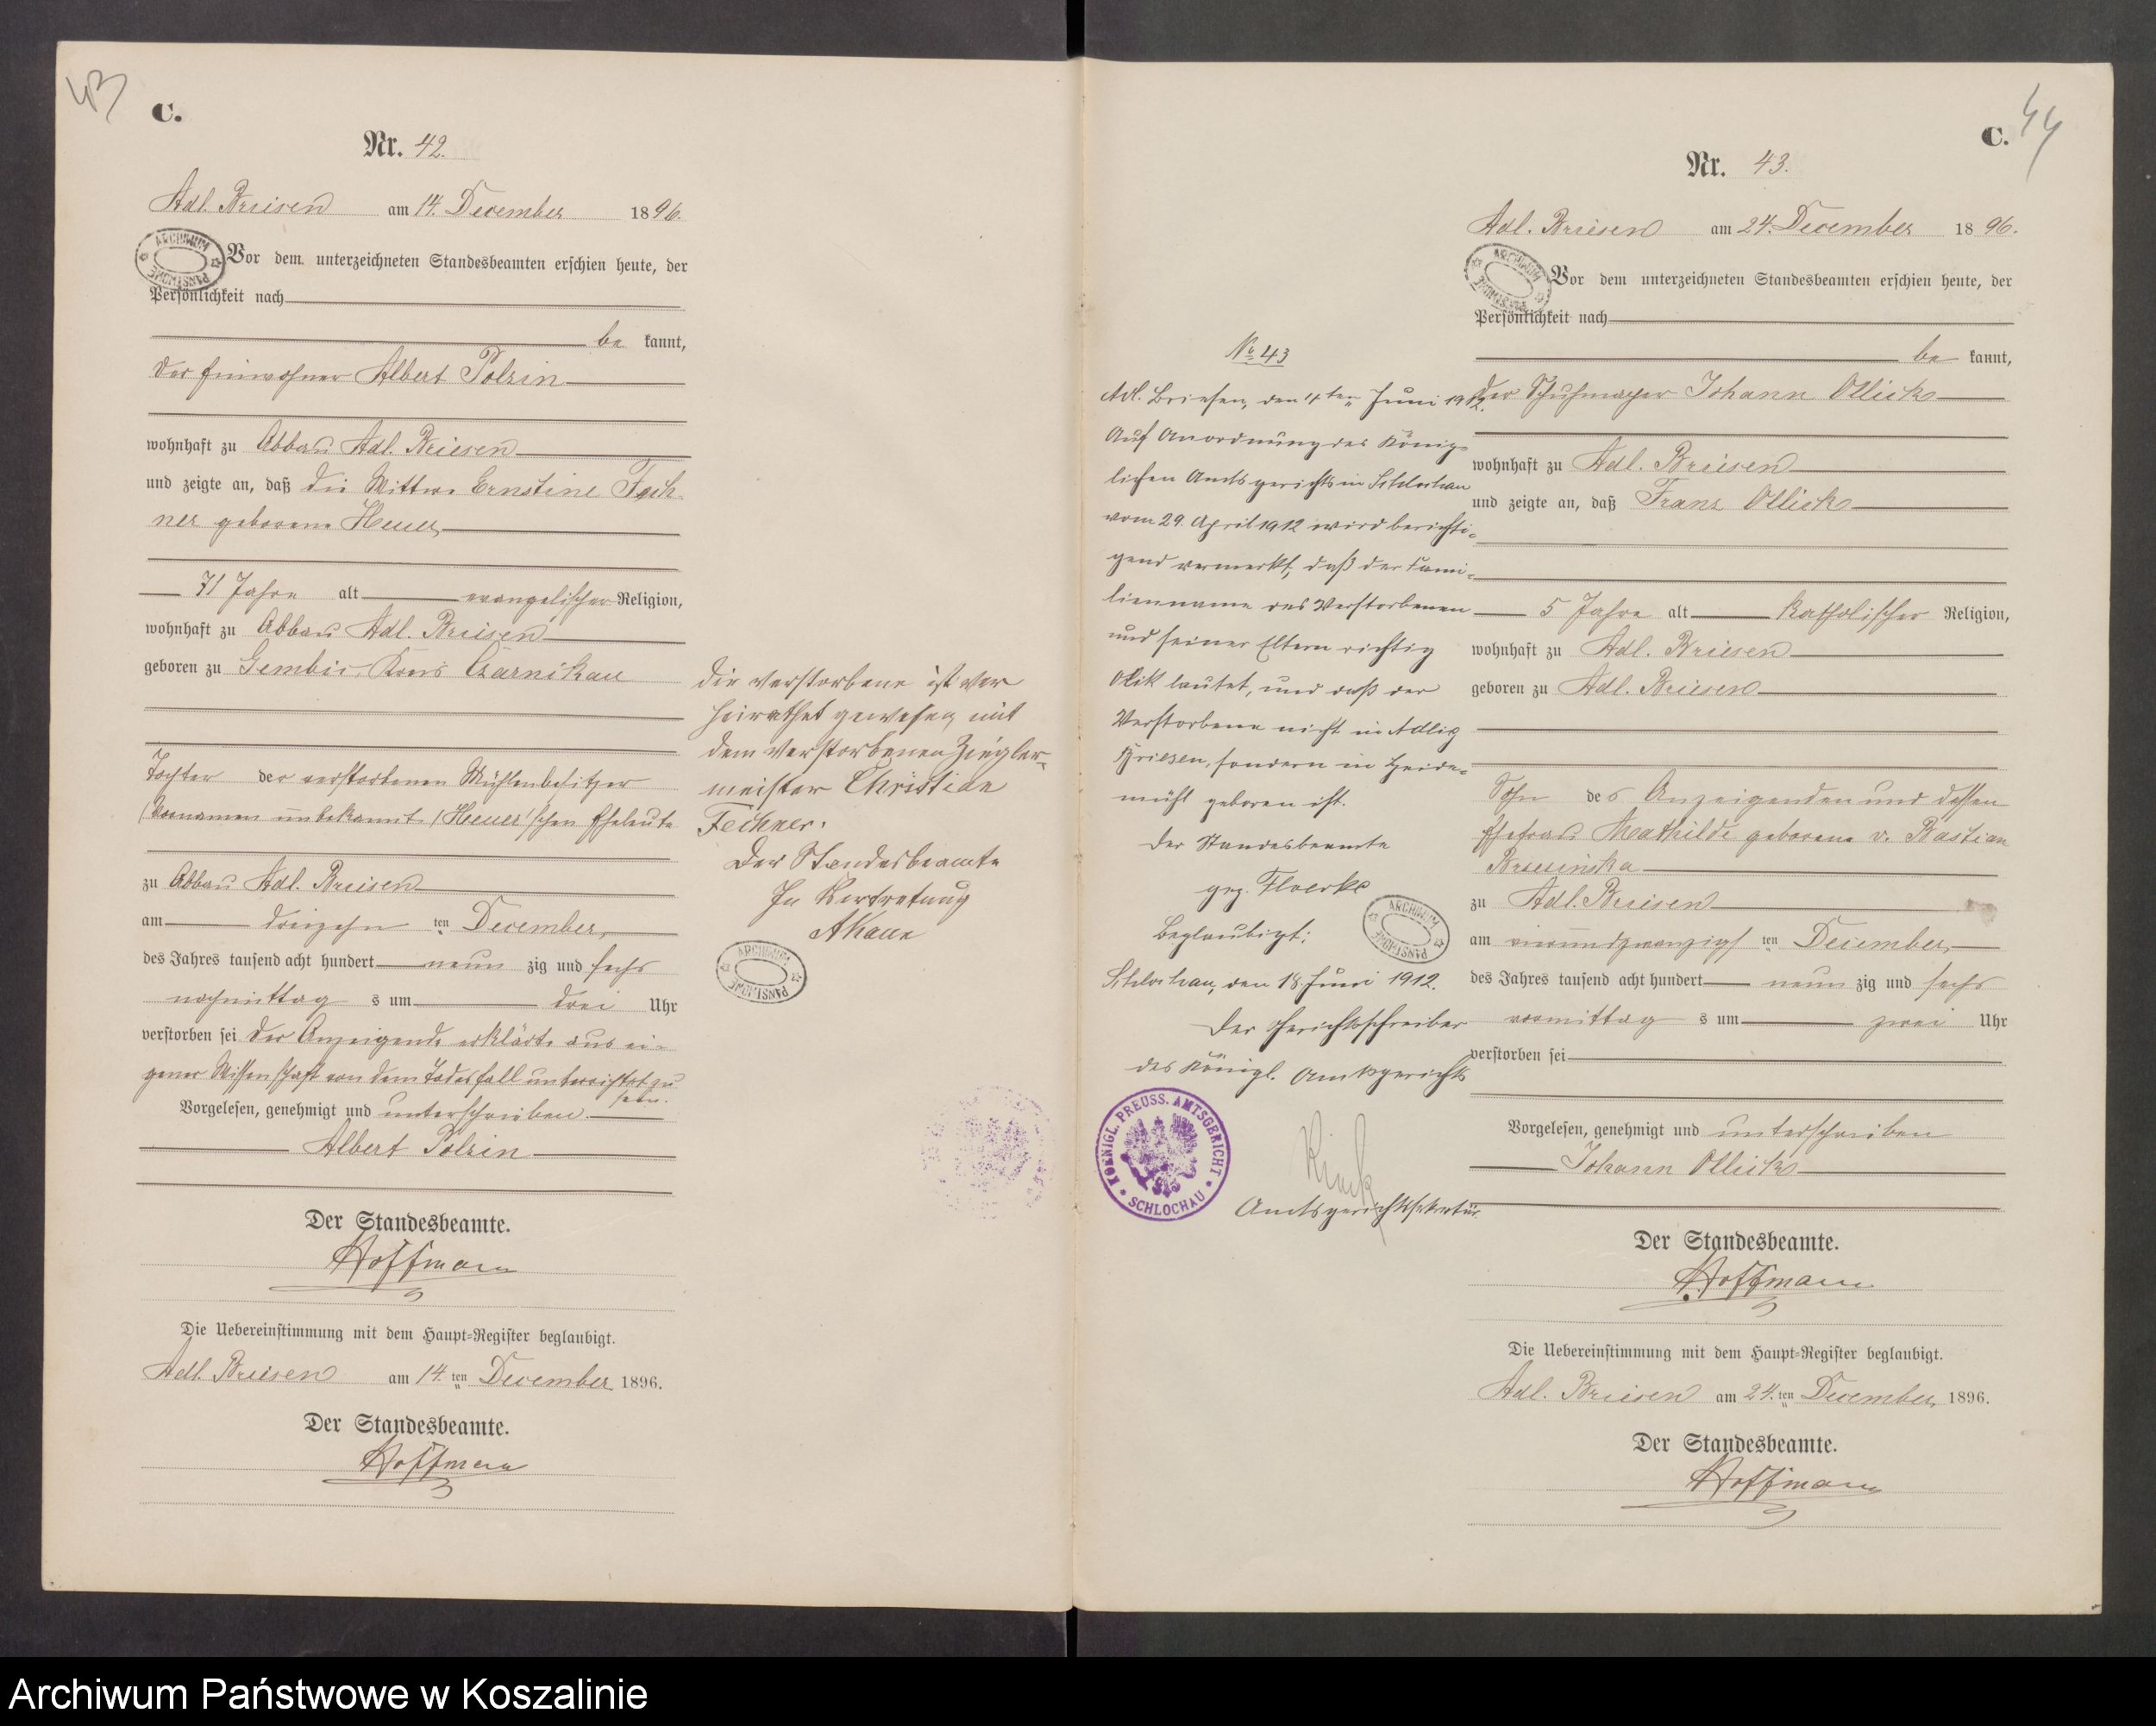 43
C.
Nr. 42.
Adl. Briesen am 14. December 1896.
Vor dem unterzeichneten Standesbeamten erschien heute, der
Persönlichkeit nach
be kannt,
der Einwohner Albert Polzin
wohnhaft zu Abbau Adl. Briesen
und zeigte an, daß die Wittwe Ernstine Fech-
ner geborene Heuer
71 Jahre alt evangelischer Religion,
wohnhaft zu Abbau Adl. Briesen
geboren zu Gembic, Kreis Czarnikau
Tochter der verstorbenen Mühlenbesitzer
(Vornamen unbekannt) Heuer'schen Eheleute
zu Abbau Adl. Briesen
am dreizehn ten December,
des Jahres tausend acht hundert neun zig und sechs
nachmittag s um drei Uhr
verstorben sei der Anzeigende erklärte aus ei-
gener Wissenschaft von dem Todesfall unterrichtet zu
sein.
Vorgelesen, genehmigt und unterschrieben.
Albert Polzin
Der Standesbeamte.
Hoffmann
Die Uebereinstimmung mit dem Haupt-Register beglaubigt.
Adl. Briesen am 14. ten December 1896.
Der Standesbeamte.
Hoffmann
Die Verstorbene ist ver
heirathet gewesen mit
dem verstorbenen Ziegler-
meister Christian
Fechner.
Der Standesbeamte
In Vertretung
ARCHIWUM PAŃSTWOWE
44
C.
Nr. 43.
Adl. Briesen am 24. December 1896.
Vor dem unterzeichneten Standesbeamten erschien heute, der
Persönlichkeit nach
be kannt,
der Schuhmacher Johann Ollick
wohnhaft zu Adl. Briesen
und zeigte an, daß Franz Ollick
5 Jahre alt katholischer Religion,
wohnhaft zu Adl. Briesen
geboren zu Adl. Briesen
Sohn des Anzeigenden und dessen
Ehefrau Mathilde geborene v. Bastian
Brzezinska
zu Adl. Briesen
am vierundzwanzigs ten December,
des Jahres tausend acht hundert neun zig und sechs
vormittag s um zwei Uhr
verstorben sei
Vorgelesen, genehmigt und unterschrieben
Johann Ollick
Der Standesbeamte.
Hoffmann
Die Uebereinstimmung mit dem Haupt-Register beglaubigt.
Adl. Briesen am 24. ten December 1896.
Der Standesbeamte.
Hoffmann
No 43
Adl. Briesen, den 4ten Juni 1912.
Auf Anordnung des König-
lichen Amtsgerichts in Schlochau
vom 29. April 1912 wird berichti-
gend vermerkt, daß der Fami-
lienname des Verstorbenen
und seiner Eltern richtig
Olik lautet, und daß der
Verstorbene nicht in Adlig
Briesen, sondern in Heide-
mühl geboren ist.
Der Standesbeamte
gez. Floerke
Beglaubigt:
Schlochau, den 18. Juni 1912.
Der Gerichtsschreiber
des Königl. Amtsgerichts
KOENIGL. PREUSS. AMTSGERICHT
SCHLOCHAU
Amtsgerichtssekretär.
Archiwum Państwowe w Koszalinie